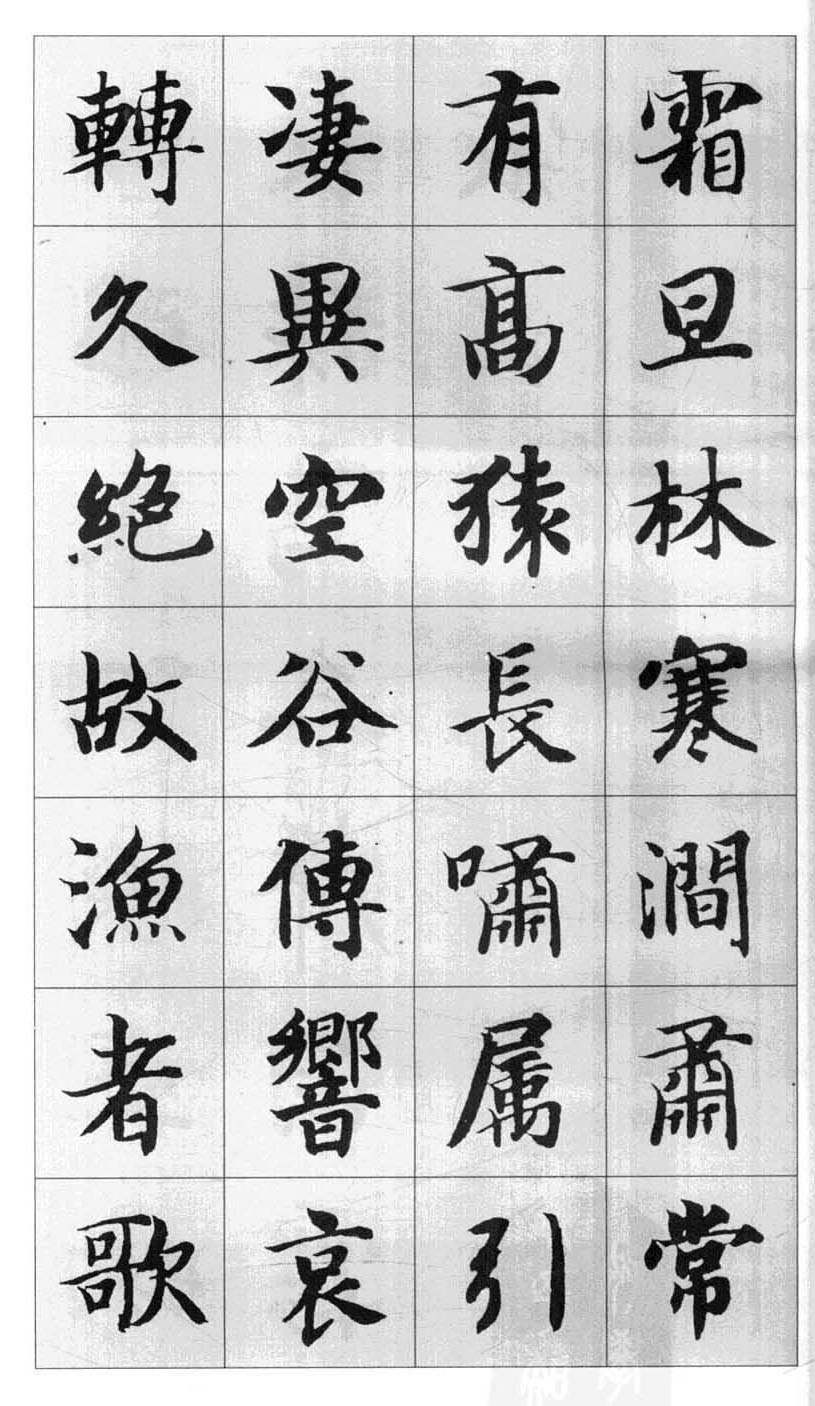 霜旦林寒澗肅常
有高猿長嘯属引
凄異空谷傳響哀
轉久絕故漁者歌